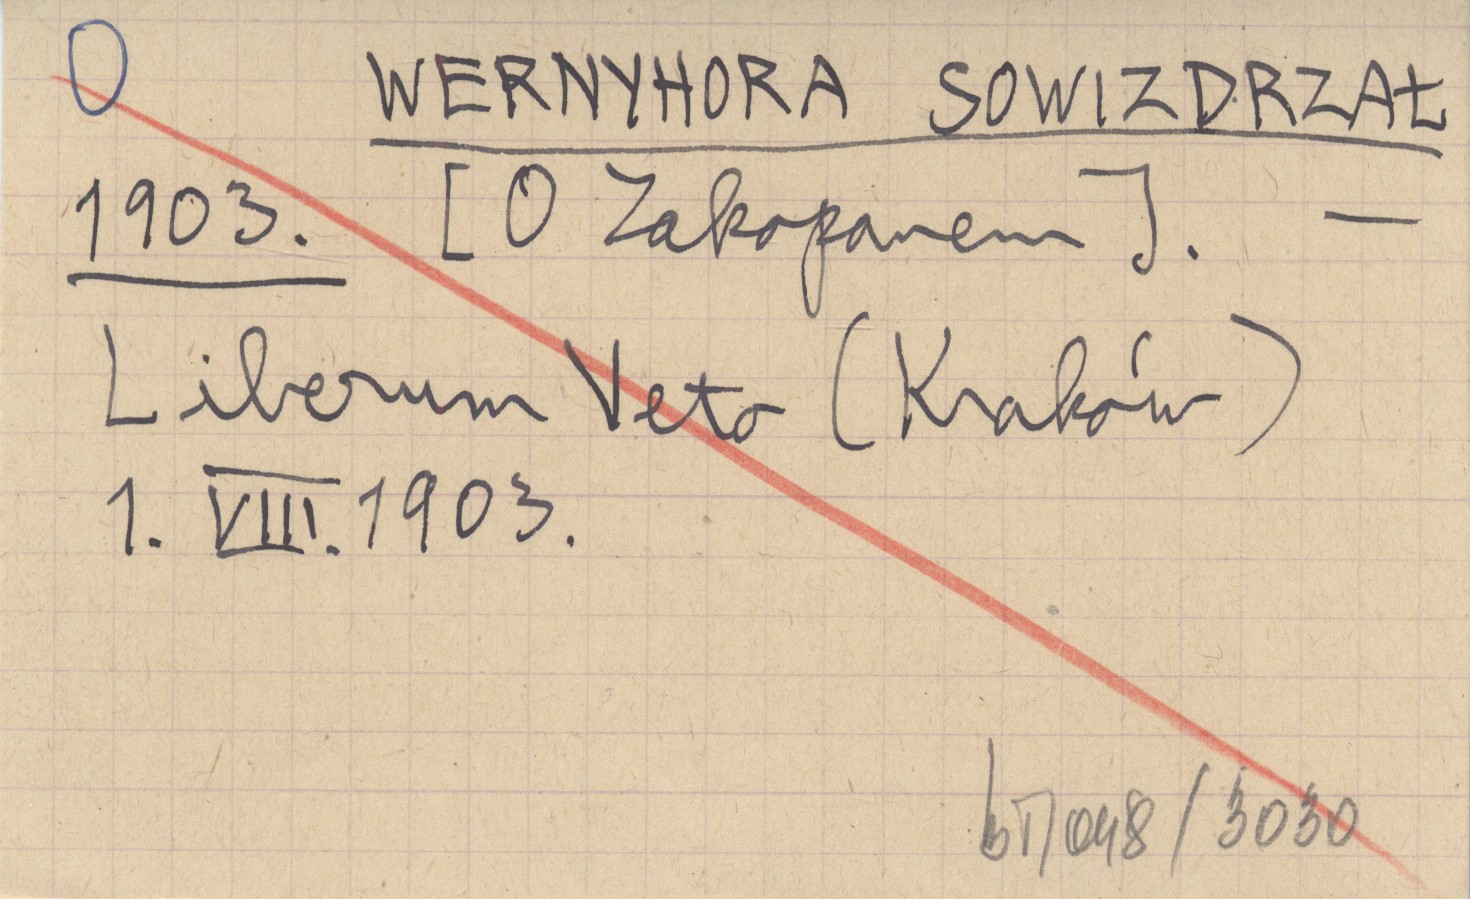 O WERNYHORA SOWIZDRZAŁ
1903. [O Zakopanem]. —
Liberum Veto (Kraków)
1. VIII. 1903.
/ 3030